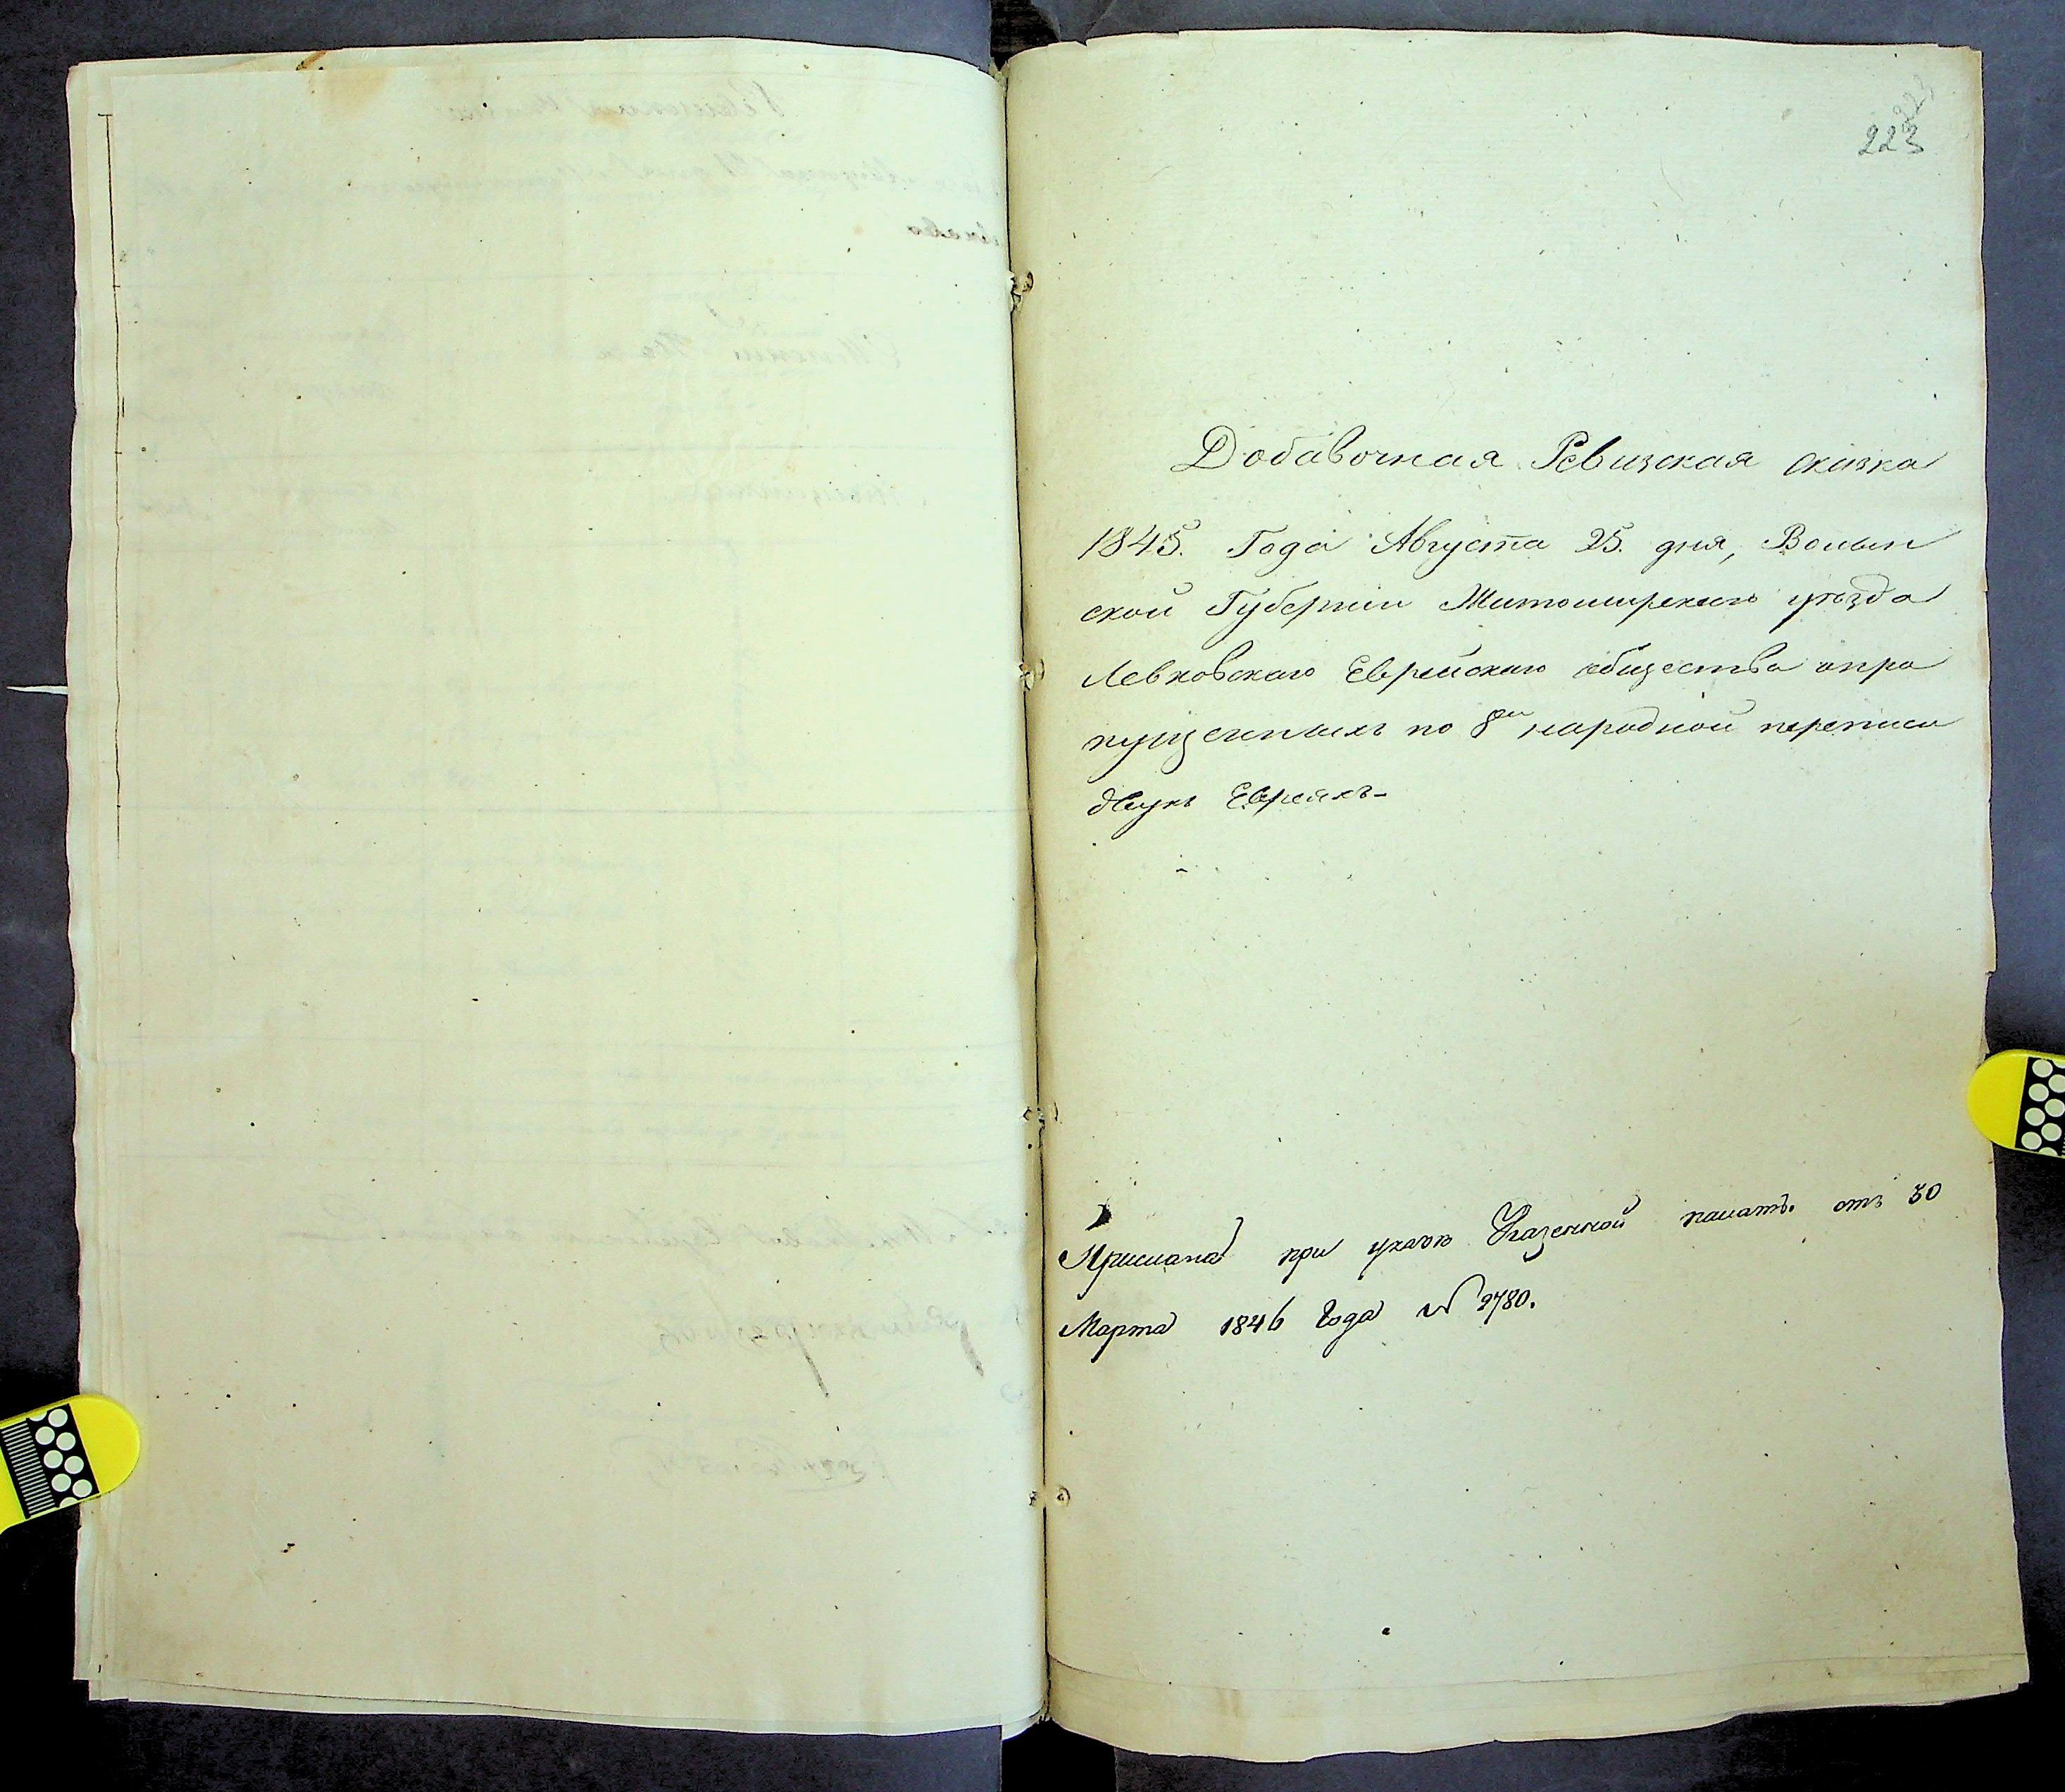 223
Добавочная Ревизская сказка
1845. Года Августа 25. дня, Волын
ской Губернии Житомирскаго уѣзда
Левковскаго Еврейскаго общества опро
пущенныхъ по 8й народной переписи
двухъ Евреяхъ-
Прислана при указѣ Казенной палаты. отъ 30
Марта 1846 Года № 9780.